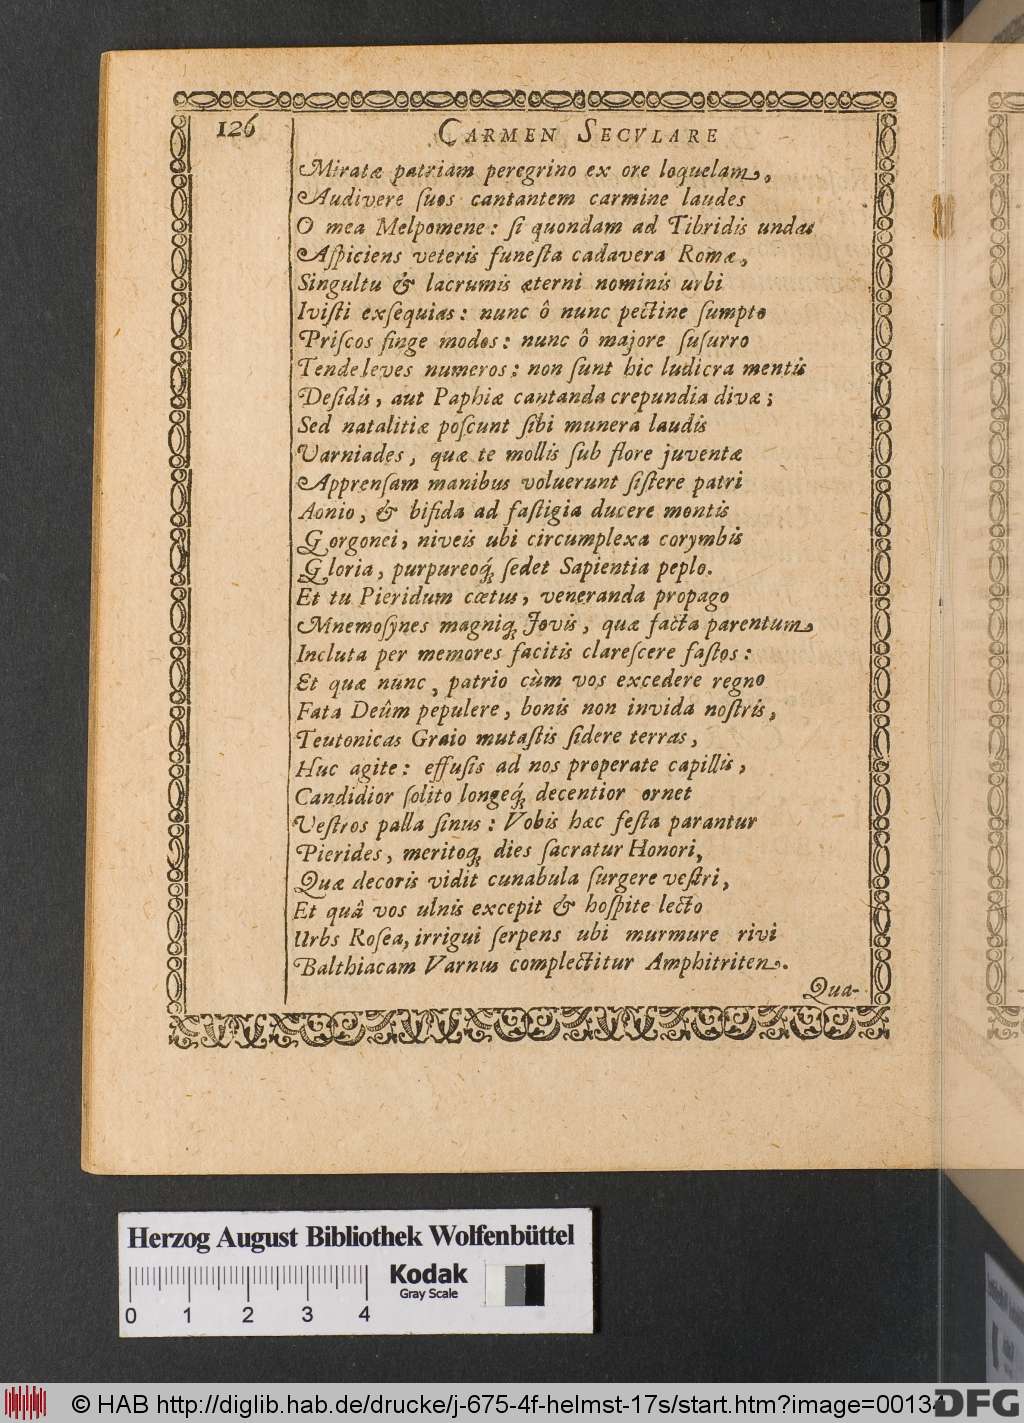 126
CARMEN SECVLARE
Miratæ patriam peregrino ex ore loquelam,
Audivere ſuos cantantem carmine laudes
O mea Melpomene: ſi quondam ad Tibridis undas
Aſpiciens veteris funeſta cadavera Romæ,
Singultu & lacrumis æterni nominis urbi
Iviſti exſequias: nunc ô nunc pectine ſumpto
Priſcos finge modos: nunc ô majore ſuſurro
Tende leves numeros: non ſunt hic ludicra mentis
Deſidis, aut Paphiæ cantanda crepundia divæ;
Sed natalitiæ poſcunt ſibi munera laudis
Varniades, quæ te mollis ſub flore juventæ
Apprenſam manibus voluerunt ſiſtere patri
Aonio, & bifida ad faſtigia ducere montis
Gorgonei, niveis ubi circumplexa corymbis
Gloria, purpureoq́; ſedet Sapientia peplo.
Et tu Pieridum cœtus, veneranda propago
Mnemoſynes magniq; Jovis, quæ facta parentum
Incluta per memores facitis clareſcere faſtos:
Et quæ nunc, patrio cùm vos excedere regno
Fata Deûm pepulere, bonis non invida noſtris,
Teutonicas Graio mutaſtis ſidere terras,
Huc agite: effuſis ad nos properate capillis,
Candidior ſolito longeq́; decentior ornet
Veſtros palla ſinus: Vobis hæc feſta parantur
Pierides, meritoq; dies ſacratur Honori,
Quæ decoris vidit cunabula ſurgere veſtri,
Et quâ vos ulnis excepit & hoſpite lecto
Urbs Roſea, irrigui ſerpens ubi murmure rivi
Balthiacam Varnus complectitur Amphitriten.
Qua-
Herzog August Bibliothek Wolfenbüttel
Kodak
Gray Scale
0 1 2 3 4
© HAB http://diglib.hab.de/drucke/j-675-4f-helmst-17s/start.htm?image=00134
DFG